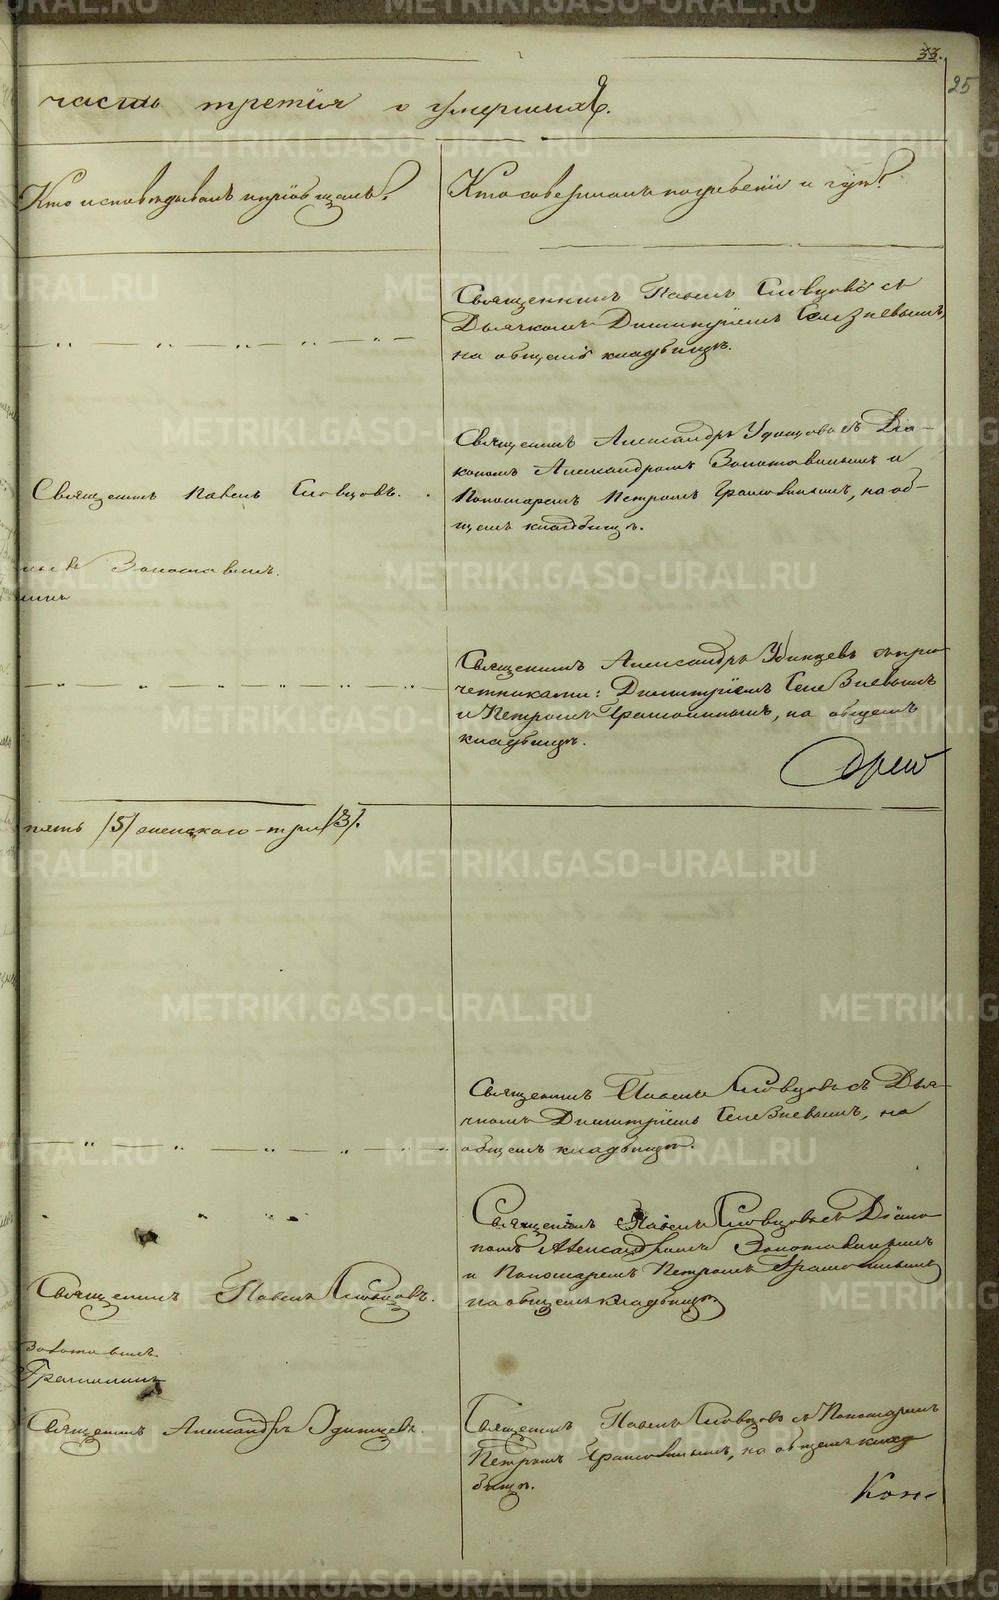 33.
25
часть третія о умершихъ.
Кто исповѣдывалъ и пріобщалъ?
Кто совершалъ погребеніе и гдѣ?
Священникъ Павелъ Словцовъ съ
Дьячкомъ Димитріемъ Селезневымъ,
на общемъ кладбищѣ.
Священникъ Александръ Удинцовъ съ Діа-
кономъ Александромъ Золотавинымъ и
Священникъ Павелъ Словцовъ.
Пономаремъ Петромъ Грамолинымъ, на об-
щемъ кладбищѣ.
Золотавинъ.
Священникъ Александръ Удинцевъ съ при-
четниками: Димитріемъ Селезневымъ
и Петромъ Грамолинымъ, на общемъ
кладбищѣ.
пять /5/ женскаго - три /3/.
Священникъ Павелъ Словцовъ съ Дья-
чкомъ Димитріемъ Селезневымъ, на
общемъ кладбищѣ.
Священникъ Павелъ Словцовъ съ Діако-
номъ Александромъ Золотавинымъ
и Пономаремъ Петромъ Грамолинымъ
Священникъ Павелъ Словцовъ.
на общемъ кладбищѣ
Золотавинъ.
Грамолинъ
Священникъ Александръ Удинцевъ.
Священникъ Павелъ Словцовъ съ Пономаремъ
Петромъ Грамолинымъ, на общемъ клад
бищѣ.
METRIKI.GASO-URAL.RU